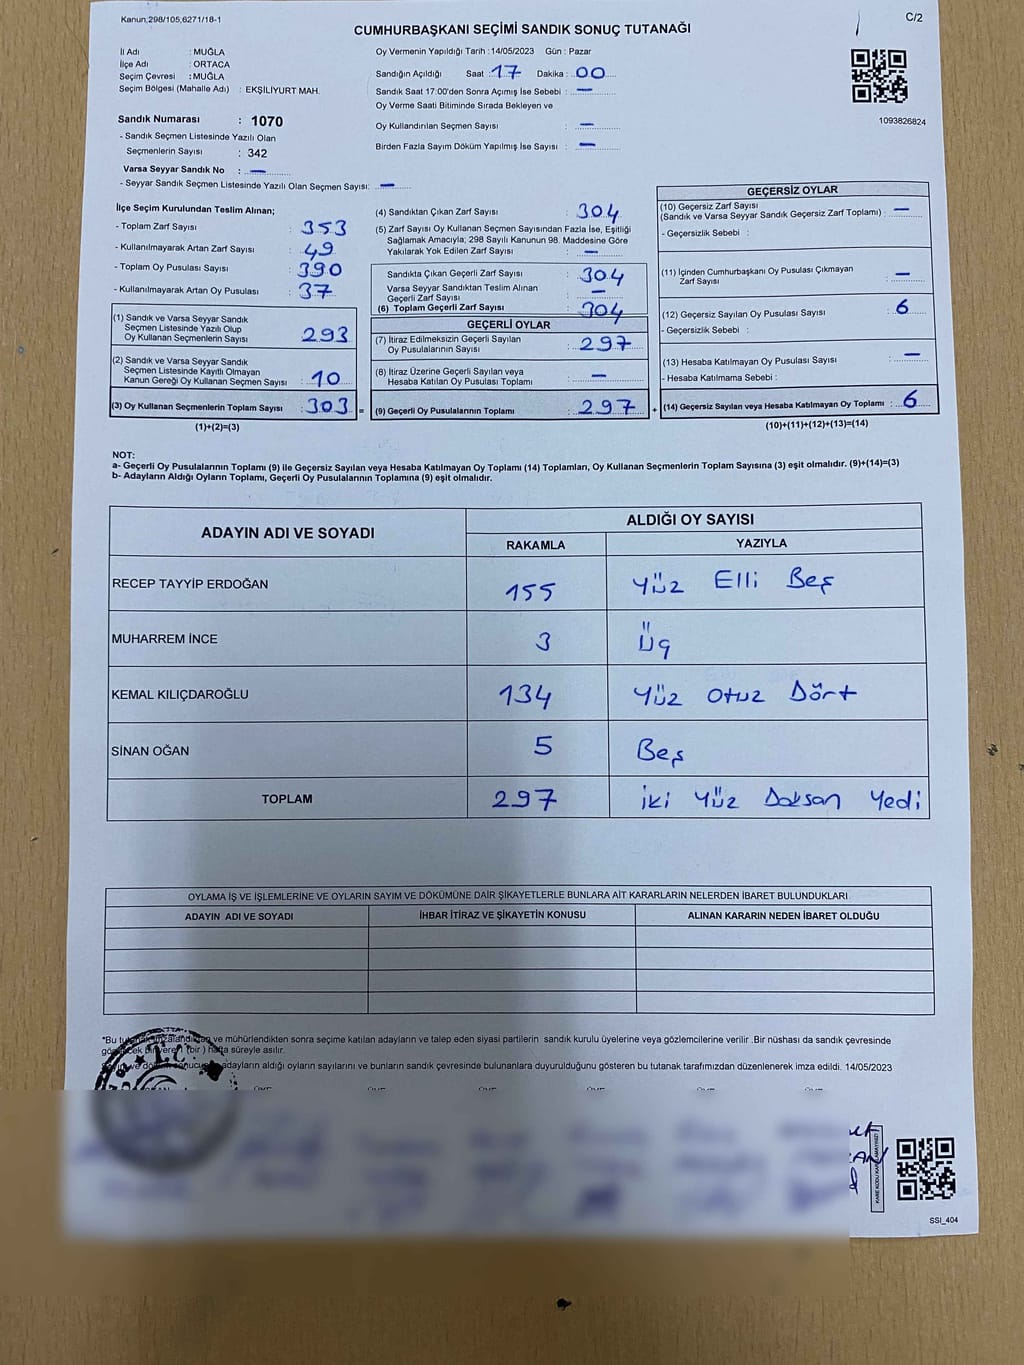 Kanun,298/105,6271/18-1
C/2
CUMHURBAŞKANI SEÇİMİ SANDIK SONUÇ TUTANAĞI
İl Adı : MUĞLA
İlçe Adı : ORTACA
Seçim Çevresi : MUĞLA
Seçim Bölgesi (Mahalle Adı) : EKŞİLİYURT MAH.
Oy Vermenin Yapıldığı Tarih :14/05/2023 Gün : Pazar
Sandığın Açıldığı Saat : 17 Dakika : 00
Sandık Saat 17:00'den Sonra Açımış İse Sebebi : —
Oy Verme Saati Bitiminde Sırada Bekleyen ve
Oy Kullandırılan Seçmen Sayısı : —
Birden Fazla Sayım Döküm Yapılmış İse Sayısı : —
1093826824
Sandık Numarası : 1070
- Sandık Seçmen Listesinde Yazılı Olan
Seçmenlerin Sayısı : 342
Varsa Seyyar Sandık No : —
- Seyyar Sandık Seçmen Listesinde Yazılı Olan Seçmen Sayısı: —
İlçe Seçim Kurulundan Teslim Alınan;
- Toplam Zarf Sayısı : 353
- Kullanılmayarak Artan Zarf Sayısı : 49
- Toplam Oy Pusulası Sayısı : 390
- Kullanılmayarak Artan Oy Pusulası : 37
(1) Sandık ve Varsa Seyyar Sandık
Seçmen Listesinde Yazılı Olup
Oy Kullanan Seçmenlerin Sayısı : 293
(2) Sandık ve Varsa Seyyar Sandık
Seçmen Listesinde Kayıtlı Olmayan
Kanun Gereği Oy Kullanan Seçmen Sayısı : 10
(3) Oy Kullanan Seçmenlerin Toplam Sayısı : 303 =
(1)+(2)=(3)
(4) Sandıktan Çıkan Zarf Sayısı : 304
(5) Zarf Sayısı Oy Kullanan Seçmen Sayısından Fazla İse, Eşitliği
Sağlamak Amacıyla; 298 Sayılı Kanunun 98. Maddesine Göre
Yakılarak Yok Edilen Zarf Sayısı : —
Sandıkta Çıkan Geçerli Zarf Sayısı : 304
Varsa Seyyar Sandıktan Teslim Alınan
Geçerli Zarf Sayısı : —
(6) Toplam Geçerli Zarf Sayısı : 304
GEÇERLİ OYLAR
(7) İtiraz Edilmeksizin Geçerli Sayılan
Oy Pusulalarının Sayısı : 297
(8) İtiraz Üzerine Geçerli Sayılan veya
Hesaba Katılan Oy Pusulası Toplamı : —
(9) Geçerli Oy Pusulalarının Toplamı : 297 +
GEÇERSİZ OYLAR
(10) Geçersiz Zarf Sayısı
(Sandık ve Varsa Seyyar Sandık Geçersiz Zarf Toplamı) : —
- Geçersizlik Sebebi :
(11) İçinden Cumhurbaşkanı Oy Pusulası Çıkmayan
Zarf Sayısı : —
(12) Geçersiz Sayılan Oy Pusulası Sayısı : 6
- Geçersizlik Sebebi :
(13) Hesaba Katılmayan Oy Pusulası Sayısı : —
- Hesaba Katılmama Sebebi :
(14) Geçersiz Sayılan veya Hesaba Katılmayan Oy Toplamı : 6
(10)+(11)+(12)+(13)=(14)
NOT:
a- Geçerli Oy Pusulalarının Toplamı (9) ile Geçersiz Sayılan veya Hesaba Katılmayan Oy Toplamı (14) Toplamları, Oy Kullanan Seçmenlerin Toplam Sayısına (3) eşit olmalıdır. (9)+(14)=(3)
b- Adayların Aldığı Oyların Toplamı, Geçerli Oy Pusulalarının Toplamına (9) eşit olmalıdır.
ADAYIN ADI VE SOYADI
ALDIĞI OY SAYISI
RAKAMLA YAZIYLA
RECEP TAYYİP ERDOĞAN 155 Yüz Elli Beş
MUHARREM İNCE 3 Üç
KEMAL KILIÇDAROĞLU 134 Yüz Otuz Dört
SİNAN OĞAN 5 Beş
TOPLAM 297 İki Yüz Doksan Yedi
OYLAMA İŞ VE İŞLEMLERİNE VE OYLARIN SAYIM VE DÖKÜMÜNE DAİR ŞİKAYETLERLE BUNLARA AİT KARARLARIN NELERDEN İBARET BULUNDUKLARI
ADAYIN ADI VE SOYADI İHBAR İTİRAZ VE ŞİKAYETİN KONUSU ALINAN KARARIN NEDEN İBARET OLDUĞU
*Bu ve mühürlendikten sonra seçime katılan adayların ve talep eden siyasi partilerin sandık kurulu üyelerine veya gözlemcilerine verilir .Bir nüshası da sandık çevresinde
bir yere (bir) hafta süreyle asılır.
adayların aldığı oyların sayılarını ve bunların sandık çevresinde bulunanlara duyurulduğunu gösteren bu tutanak tarafımızdan düzenlenerek imza edildi. 14/05/2023
T.C.
SSI_404